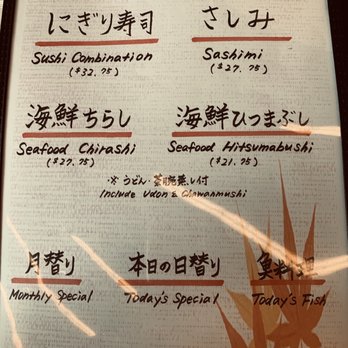 にぎり寿司 さしみ
Sushi Combination Sashimi
($32.75) ($27.75)
海鮮ちらし 海鮮ひつまぶし
Seafood Chirashi Seafood Hitsumabushi
($27.75) ($21.75)
※うどん・茶碗蒸し付
Include Udon & Chawanmushi
月替り 本日の日替り 魚料理
Monthly Special Today's Special Today's Fish